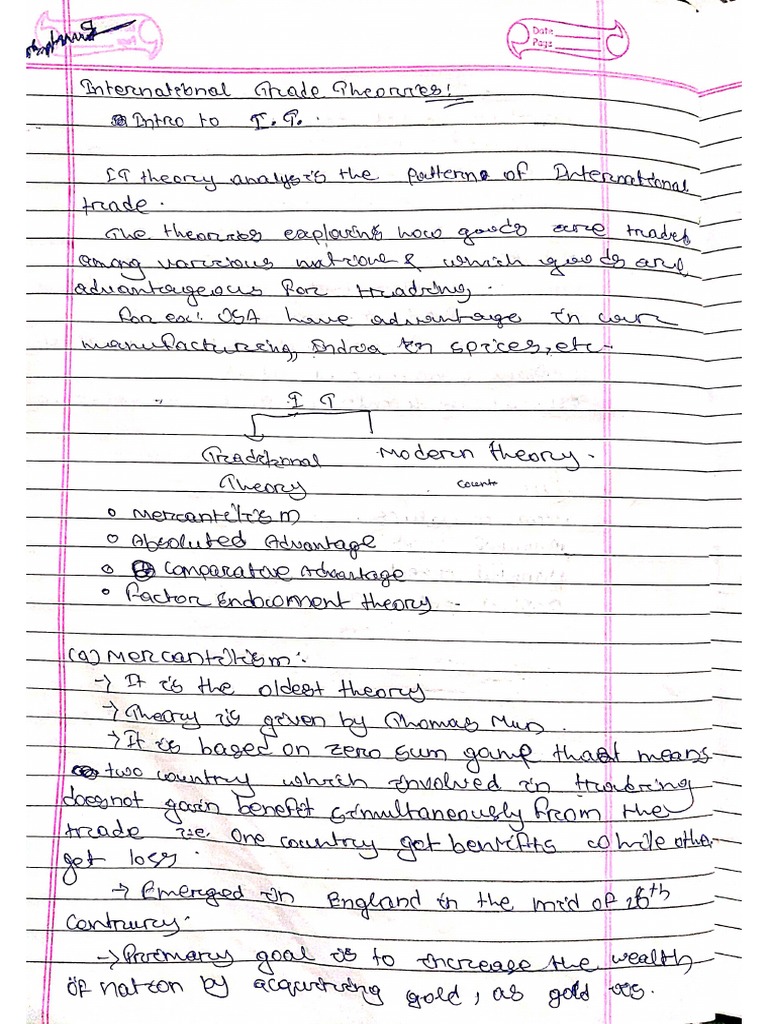 Date
Page
International Trade Theories:
Intro to I.T.
IT theory analysis the patterns of International
trade.
The theories explains how goods are trades
among various nations & which goods are
advantageous for trading.
For ex: USA have advantage in
manufacturing, India in spices, etc-
I T
Traditional Modern theory.
Theory
Count
Mercantilism
Absoluted Advantage
Comparative Advantage
Factor Endowment theory.
(a) Mercantilism:
→ It is the oldest theory
→ Theory is given by Thomas Mun.
→ It is based on zero sum game that means
two country which involved in trading
doesnot gain benefit simultaneously from the
trade i.e. one country get benifits while other
get loss.
→ Emerged in England in the mid of 16th
Contrury.
→ Primary goal is to increase the wealth
of nation by acquiring gold, as gold is.